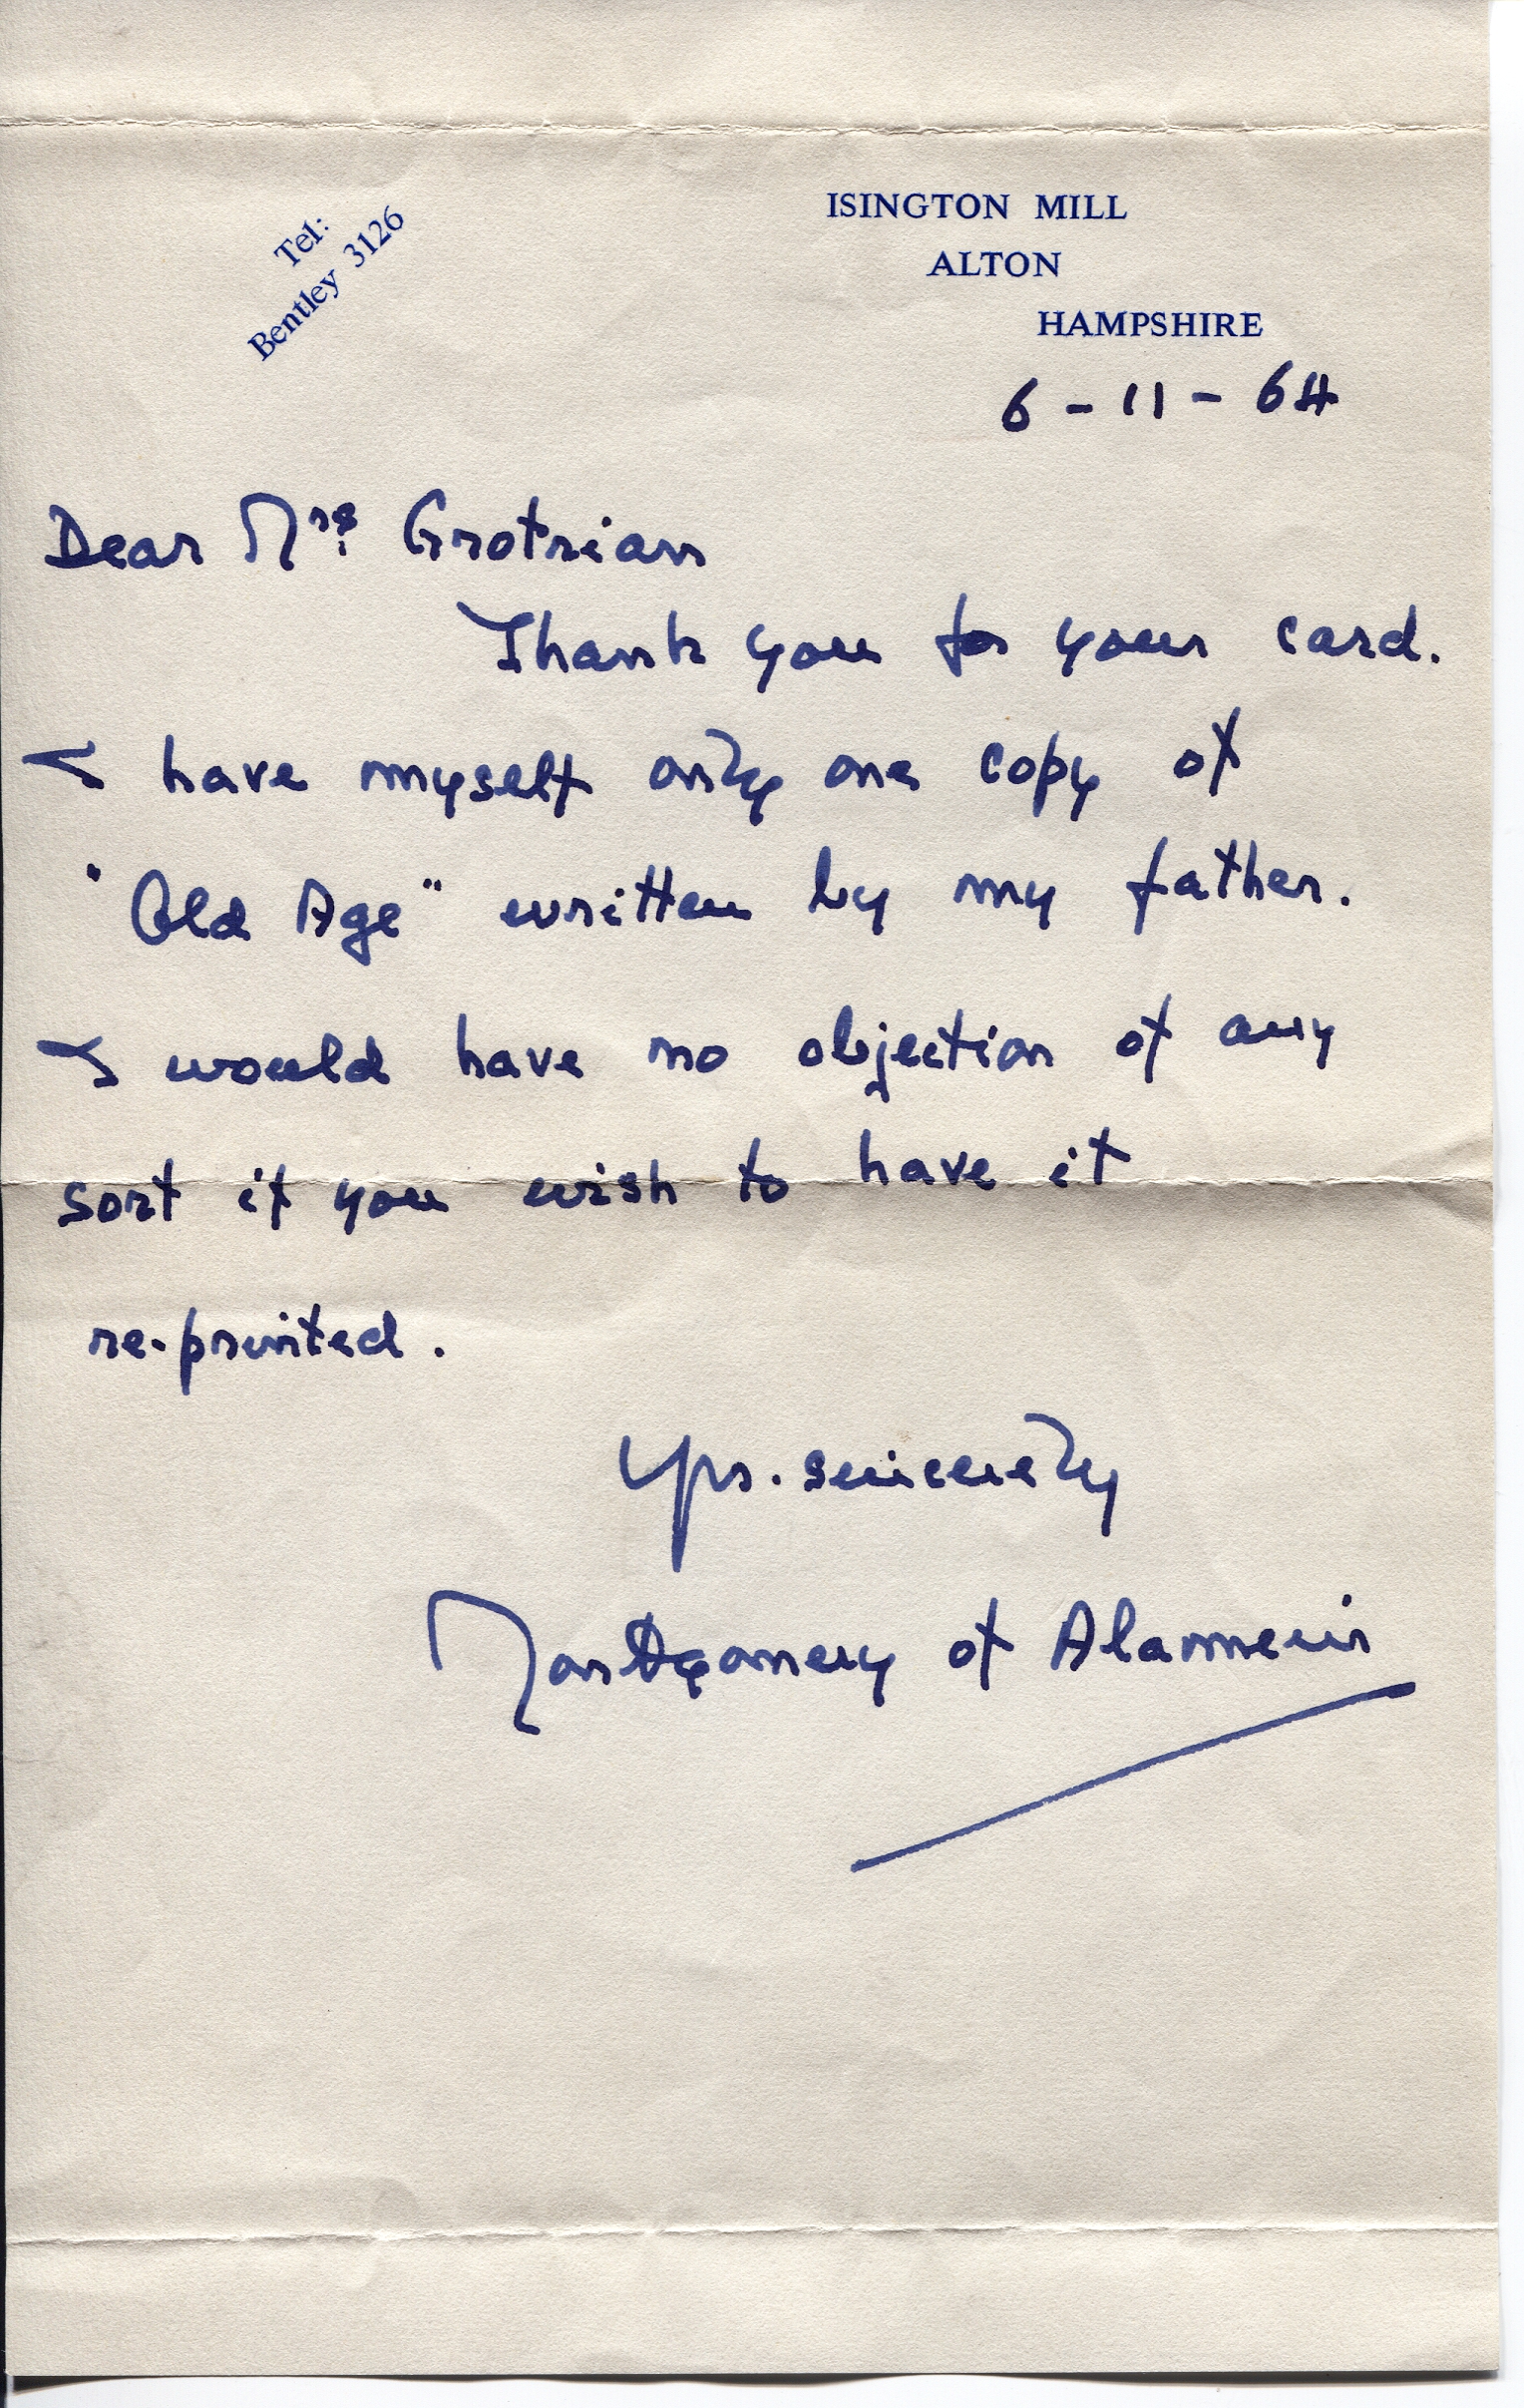 Tel:
Bentley 3126
ISINGTON MILL
ALTON
HAMPSHIRE
6 - 11 - 64
Dear Mrs. Grotrian
Thank you for your card.
I have myself only one copy of
"Old Age" written by my father.
I would have no objection of any
sort if you wish to have it
re-printed.
Yrs. sincerely
Montgomery of Alamein